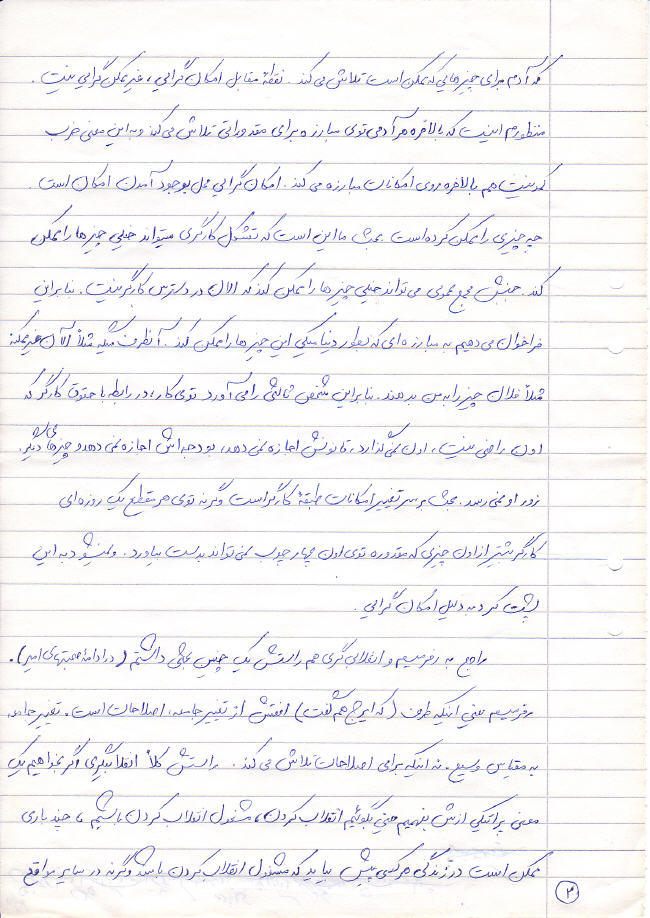 که آدم برای چیزهایی که ممکن است تلاش می‌کند. نقطهٔ مقابل امکان گرایی، غیر ممکن گرایی نیست.
منظورم اینست که بالاخره هر آدمی توی مبارزه برای مقدوراتی تلاش می‌کند و به این معنی حزب
کمونیست هم بالاخره روی امکانات مبارزه می‌کند. امکان گرایی محل بوجود آمدن امکان است.
چه چیزی را ممکن کرده است. بحث ما این است که تشکل کارگری میتواند خیلی چیزها را ممکن
کند. جنبش مجمع عمومی می‌تواند خیلی چیزها را ممکن کند که الان در دسترس کارگر نیست. بنابراین
فراخوان می‌دهیم به مبارزه‌ای که بطور دینامیکی این چیزها را ممکن کند. آنطرف میگه مثلاً الان غیر ممکنه
مثلاً فلان چیز را به من بدهند. بنابراین شخص ثالثی را می‌آورد توی کار، در رابطه با حقوق کارگر که
اون راضی نیست، اون نمی‌گذارد، قانونش اجازه نمی‌دهد، بودجه‌اش اجازه نمی‌دهد و چیزهای دیگر.
زور او نمی‌رسد. بحث بر سر تغییر امکانات طبقهٔ کارگر است وگرنه توی هر مقطع یک روزه‌ای
کارگر بیشتر از اون چیزی که مقدوره توی اون چهارچوب نمی‌تواند بدست بیاورد. و نمیشود به این
پشت کرد به دلیل امکان گرایی.
راجع به رفرمیسم و انقلابی‌گری هم راستش یک چنین بحثی داشتم (در ادامهٔ صحبتهای امیر).
رفرمیسم یعنی اینکه طرف (که ایرج هم گفت) افقش از تغییر جامعه، اصلاحات است. تغییر جامعه
به مقیاس وسیع. نه اینکه برای اصلاحات تلاش می‌کند. راستش کلاً انقلابیگری و اگر بخواهیم یک
معنی پراتیکی ازش بفهمیم یعنی بگوئیم انقلاب کردن، مشغول انقلاب کردن باشیم، چند باری
ممکن است در زندگی هر کسی پیش بیاید که مشغول انقلاب کردن باشد وگرنه در سایر مواقع
۲